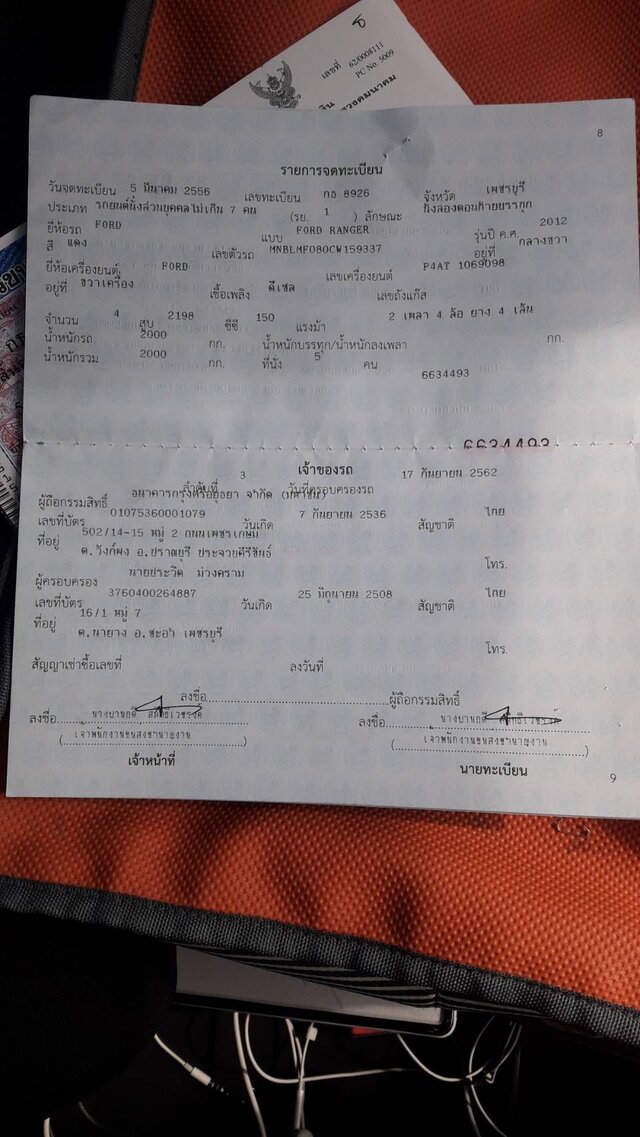 เลขที่ 62/0008111
PC No. 5009
8
รายการจดทะเบียน
วันจดทะเบียน 5 มีนาคม 2556 เลขทะเบียน กธ 8926 จังหวัด เพชรบุรี
ประเภท รถยนต์นั่งส่วนบุคคลไม่เกิน 7 คน (รย. 1 ) ลักษณะ นั่งสองตอนท้ายบรรทุก
ยี่ห้อรถ FORD แบบ FORD RANGER รุ่นปี ค.ศ. 2012
สี แดง เลขตัวรถ MNBLMF080CW159337 อยู่ที่ กลางขวา
ยี่ห้อเครื่องยนต์ FORD เลขเครื่องยนต์ P4AT 1069098
อยู่ที่ ขวาเครื่อง เชื้อเพลิง ดีเซล เลขถังแก๊ส
จำนวน 4 สูบ 2198 ซีซี 150 แรงม้า 2 เพลา 4 ล้อ ยาง 4 เส้น
น้ำหนักรถ 2000 กก. น้ำหนักบรรทุก/น้ำหนักลงเพลา กก.
น้ำหนักรวม 2000 กก. ที่นั่ง 5 คน
6634493
6634493
เจ้าของรถ
ลำดับที่ 3 วันที่ครอบครองรถ 17 กันยายน 2562
ผู้ถือกรรมสิทธิ์ ธนาคารกรุงศรีอยุธยา จำกัด (มหาชน)
เลขที่บัตร 0107536001079 วันเกิด 7 กันยายน 2536 สัญชาติ ไทย
ที่อยู่ 502/14-15 หมู่ 2 ถนนเพชรเกษม
ต.วังก์พง อ.ปราณบุรี ประจวบคีรีขันธ์ โทร.
ผู้ครอบครอง นายประวิต ม่วงคราม
เลขที่บัตร 3760400264887 วันเกิด 25 มิถุนายน 2508 สัญชาติ ไทย
ที่อยู่ 16/1 หมู่ 7
ต.นายาง อ.ชะอำ เพชรบุรี โทร.
สัญญาเช่าซื้อเลขที่ ลงวันที่
ลงชื่อ ผู้ถือกรรมสิทธิ์
ลงชื่อ ลงชื่อ
(เจ้าพนักงานขนส่งชำนาญงาน) (เจ้าพนักงานขนส่งชำนาญงาน)
เจ้าหน้าที่ นายทะเบียน
9